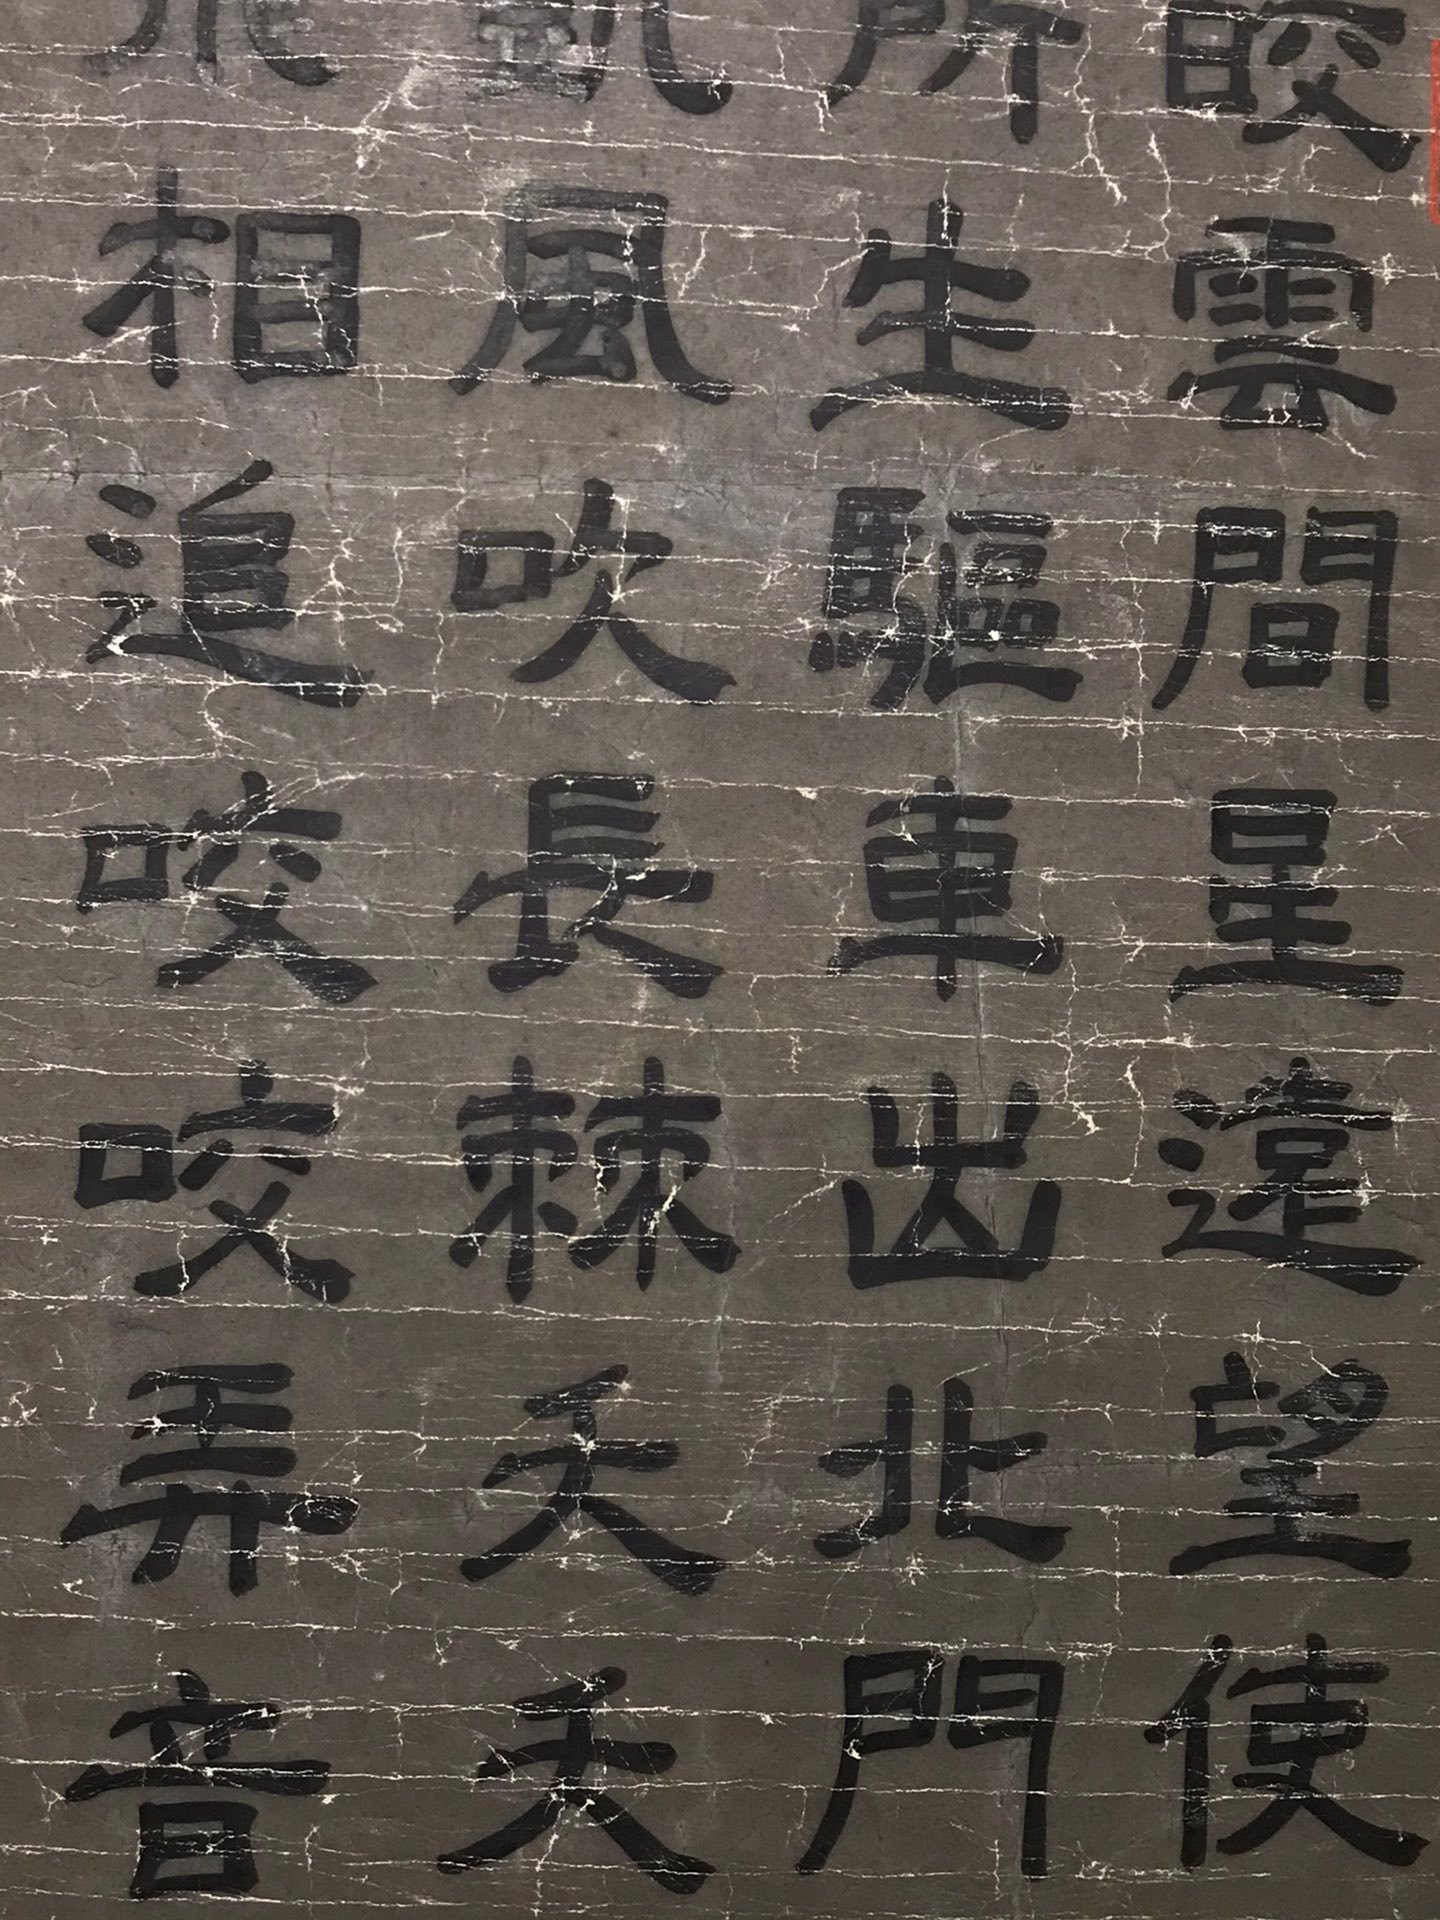 皎雲間星遠望使
所生驅車出北門
凱風吹長棘夭夭
飛相追咬咬弄音